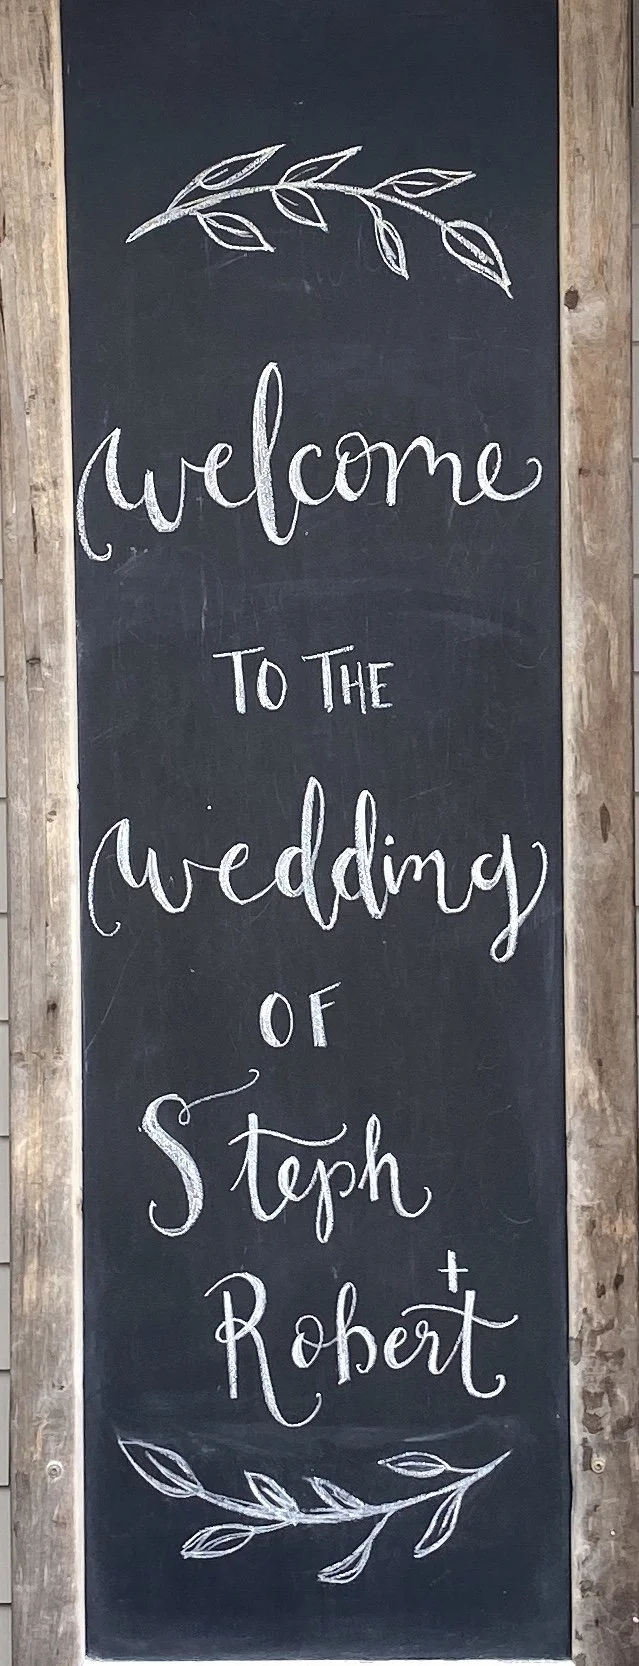 welcome
TO THE
wedding
OF
Steph
+
Robert